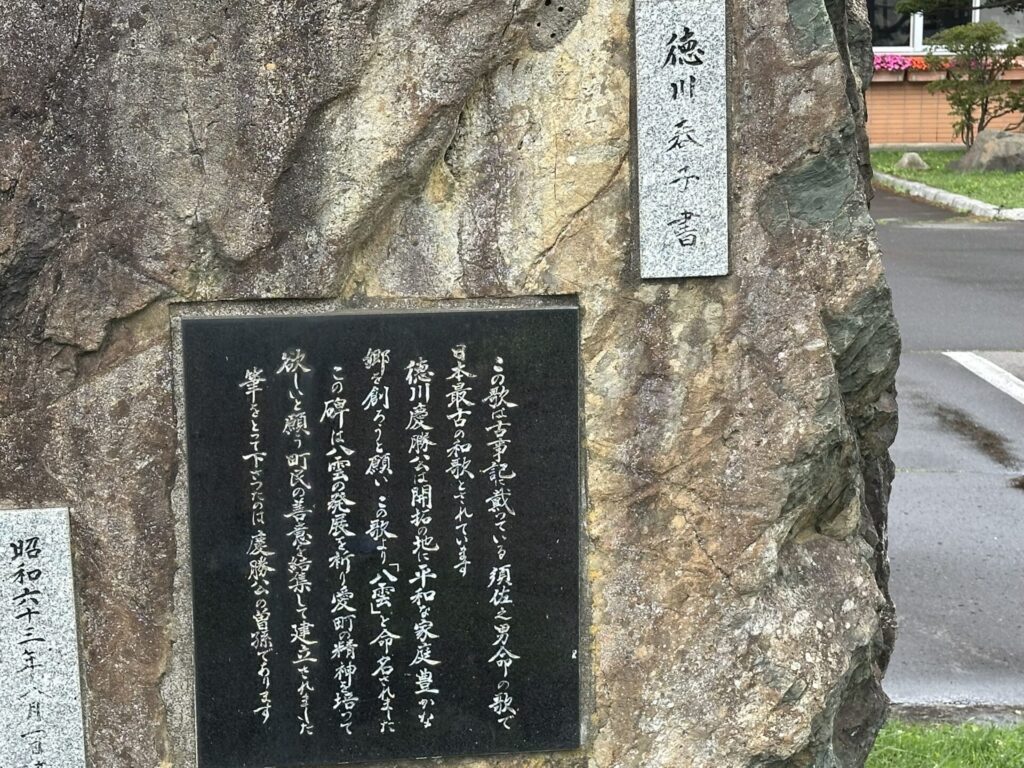 徳川衣子書
この歌は古事記に載っている須佐之男命の歌で
日本最古の和歌とされています
徳川慶勝公は開拓の地に平和な家庭豊かな
郷を創ろうと願いこの歌より「八雲」と命名されました
この碑は八雲の発展を祈り愛町の精神を培って
欲しいと願う町民の善意を結集して建立されました
筆をとって下さったのは慶勝公の曽孫であります
昭和六十三年八月一日